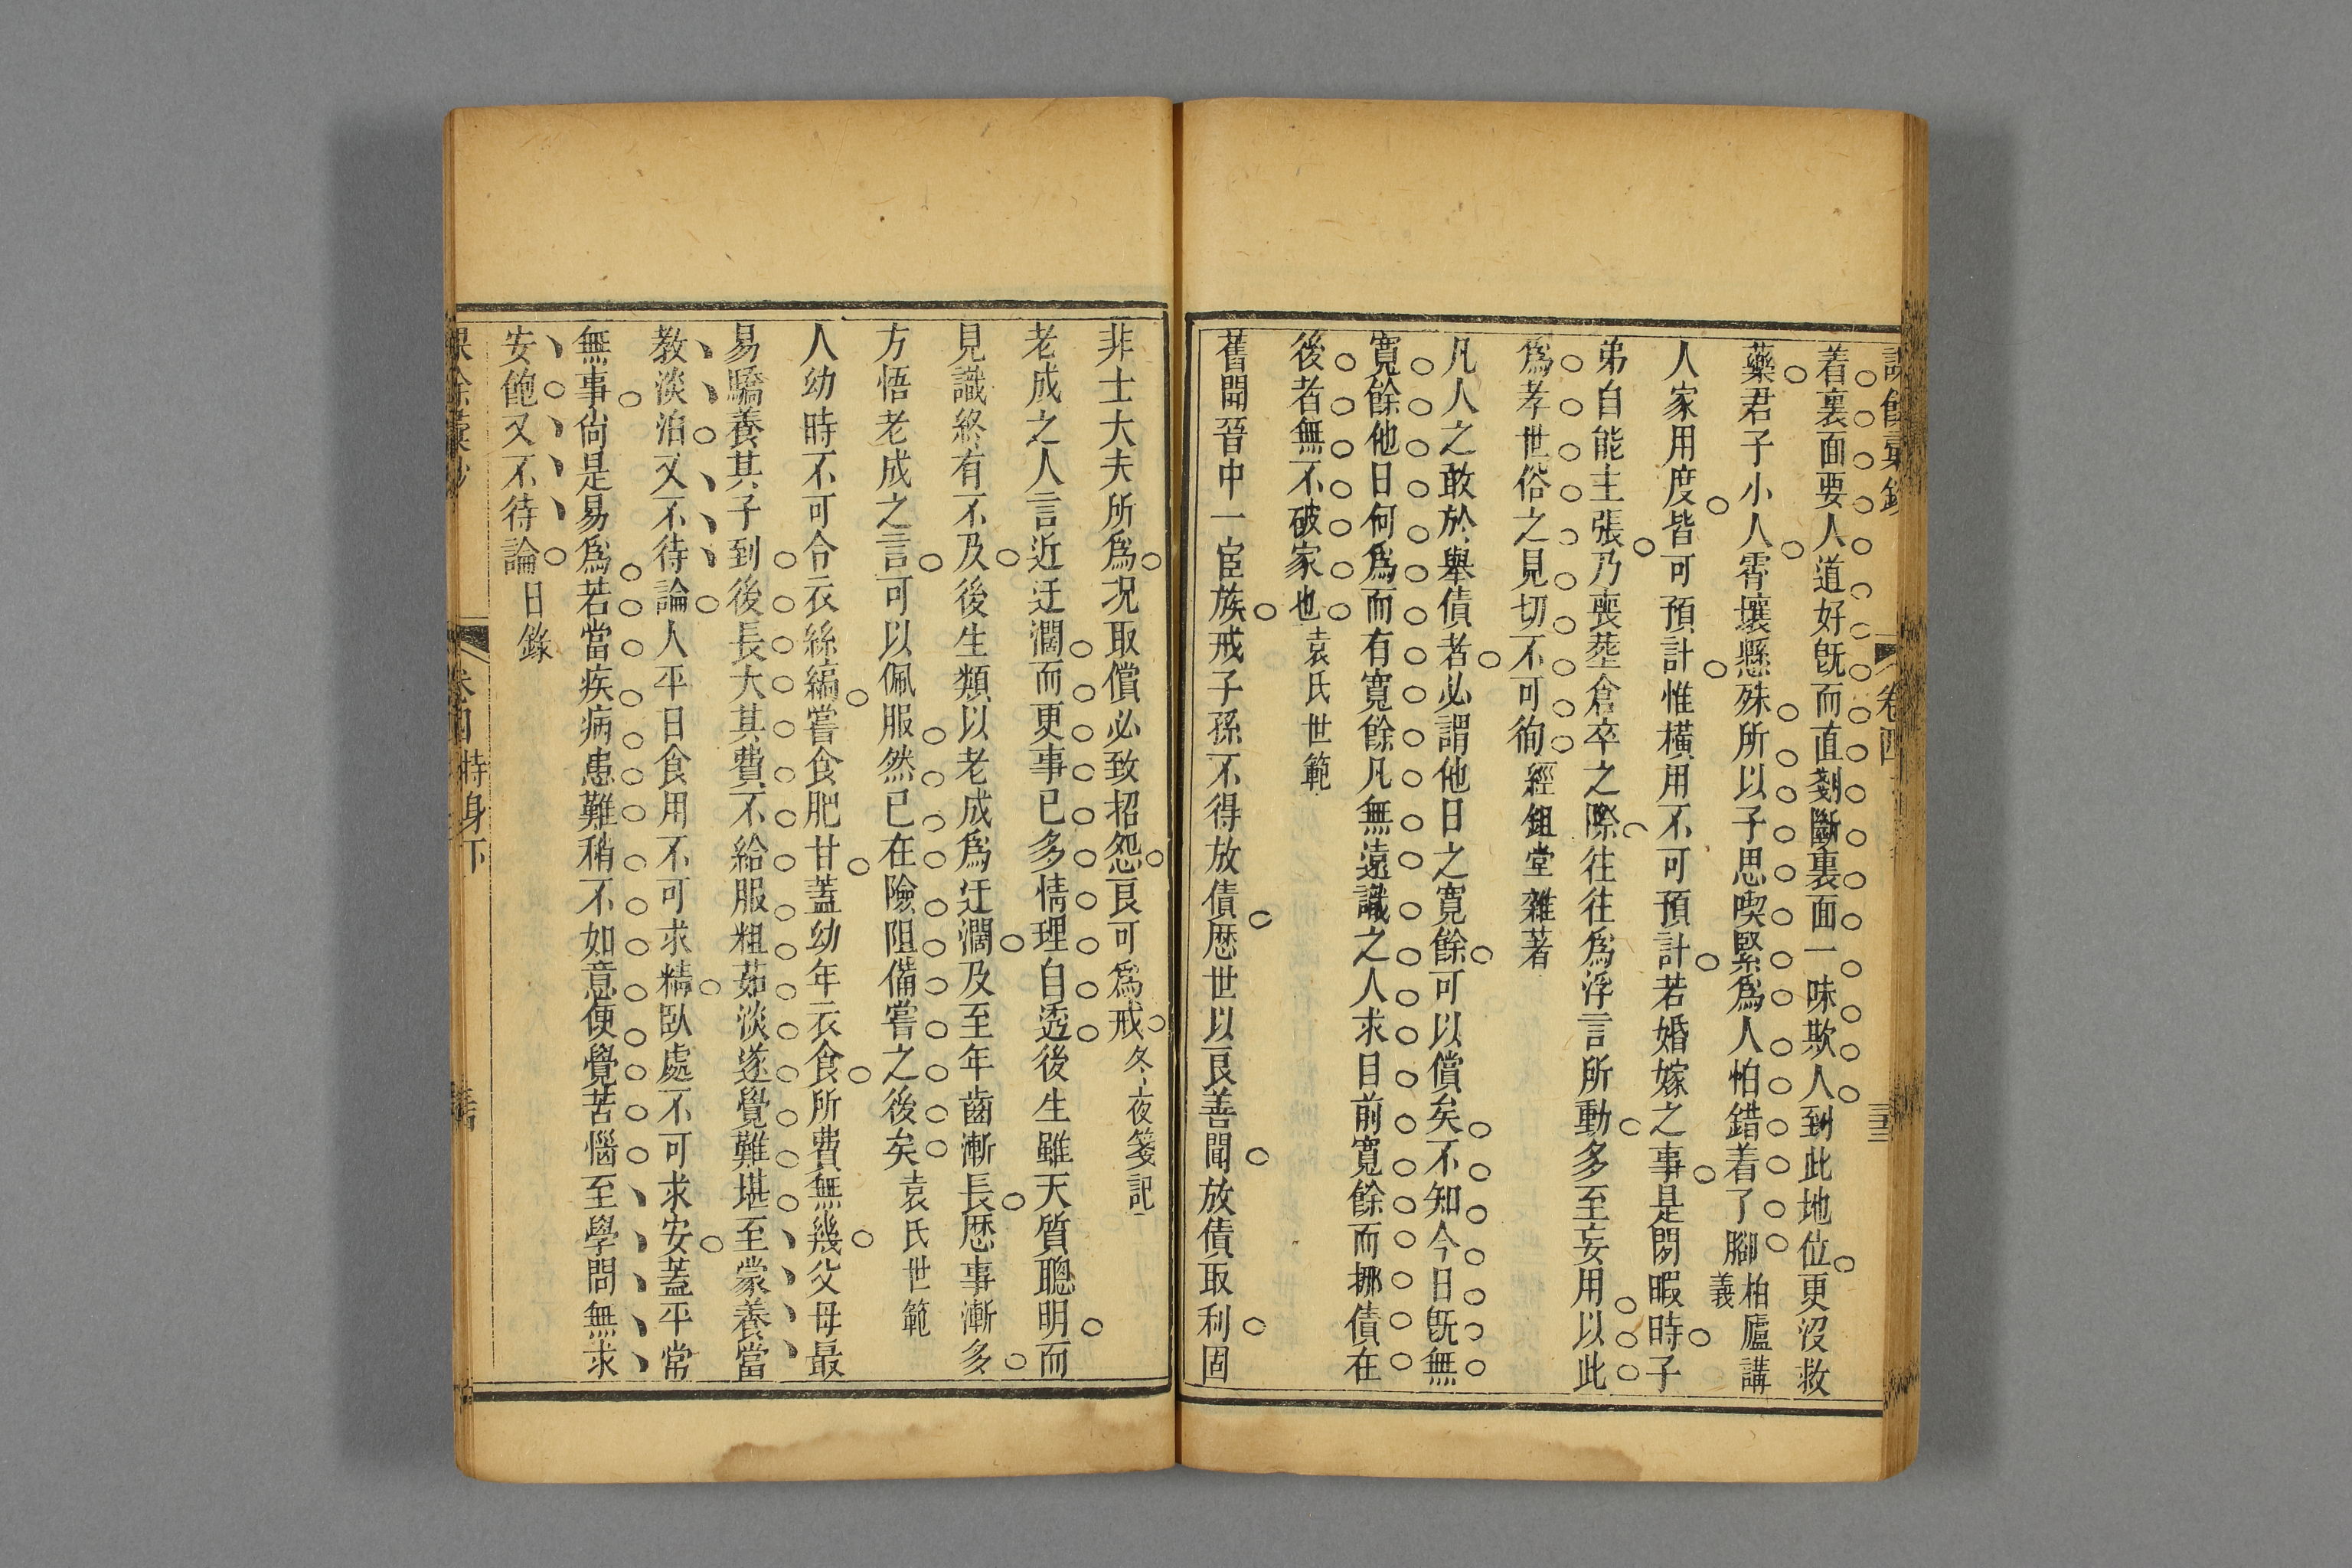 課餘彙鈔
卷四
着裏面要人道好旣而直剗斷裏面一味欺人到此地位更沒救
藥君子小人霄壤懸殊所以子思喫緊爲人怕錯着了腳柏廬講義
人家用度皆可預計惟橫用不可預計若婚嫁之事是閒暇時子
弟自能主張乃喪塟倉卒之際往往爲浮言所動多至妄用以此
爲孝世俗之見切不可徇經鉏堂雜著
凡人之敢於舉債者必謂他日之寬餘可以償矣不知今日旣無
寬餘他日何爲而有寬餘凡無遠識之人求目前寬餘而挪債在
後者無不破家也袁氏世範
舊聞晉中一宦族戒子孫不得放債厯世以良善聞放債取利固
非士大夫所爲况取償必致招怨良可爲戒冬夜箋記
老成之人言近迂濶而更事已多情理自透後生雖天質聰明而
見識終有不及後生類以老成爲迂濶及至年齒漸長厯事漸多
方悟老成之言可以佩服然已在險阻備嘗之後矣袁氏世範
人幼時不可令衣絲縞嘗食肥甘蓋幼年衣食所費無幾父母最
易驕養其子到後長大其費不給服粗茹淡遂覺難堪至蒙養當
教淡泊又不待論人平日食用不可求精臥處不可求安蓋平常
無事尙是易爲若當疾病患難稍不如意便覺苦惱至學問無求
安飽又不待論日錄
課餘彙鈔
卷四 持身下